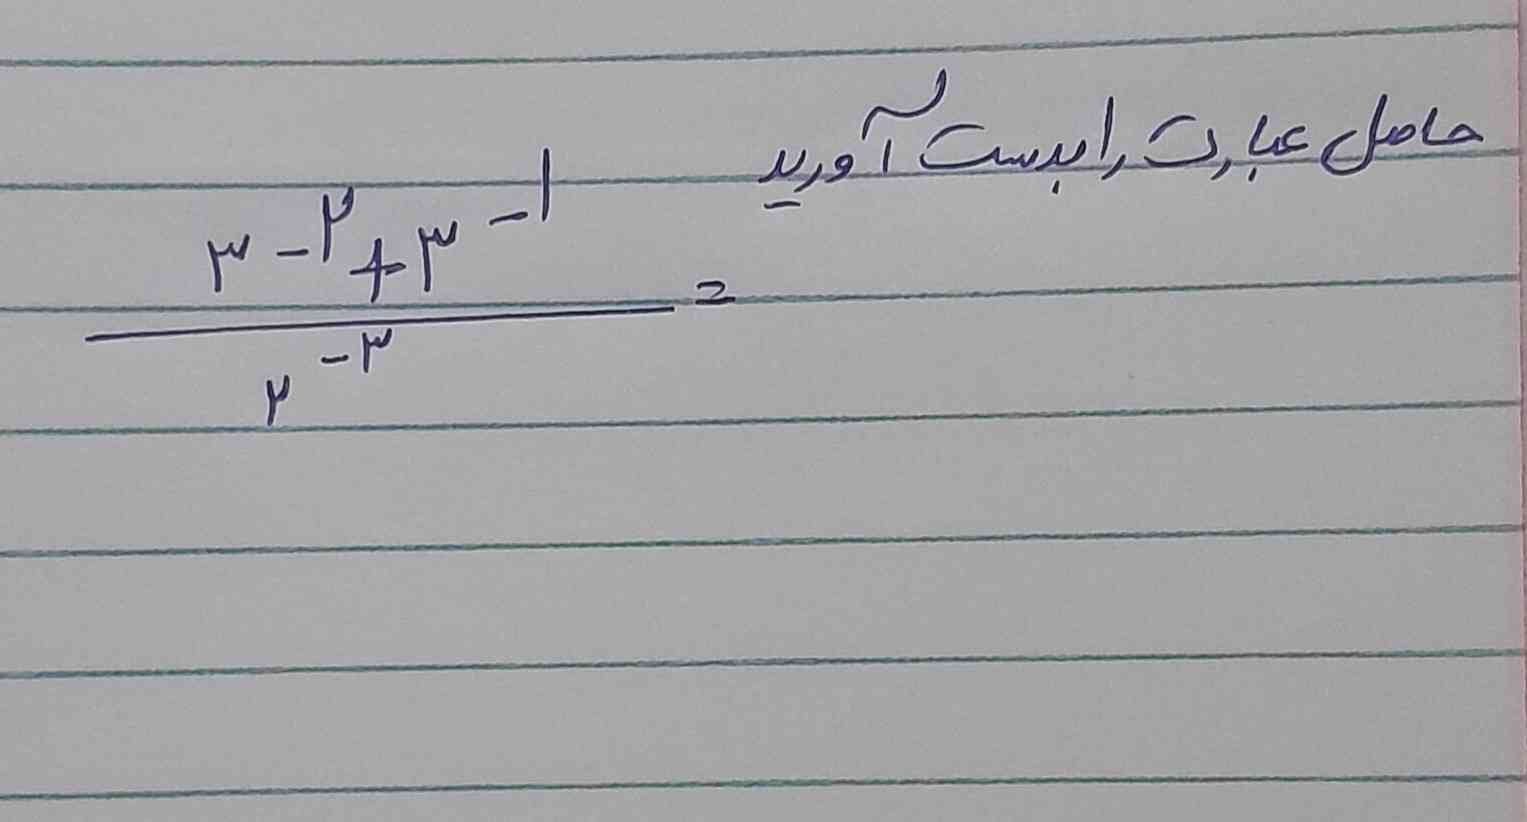 حاصل عبارت را بدست آورید
۳^-۲ + ۳^-۱ =
۲^-۳